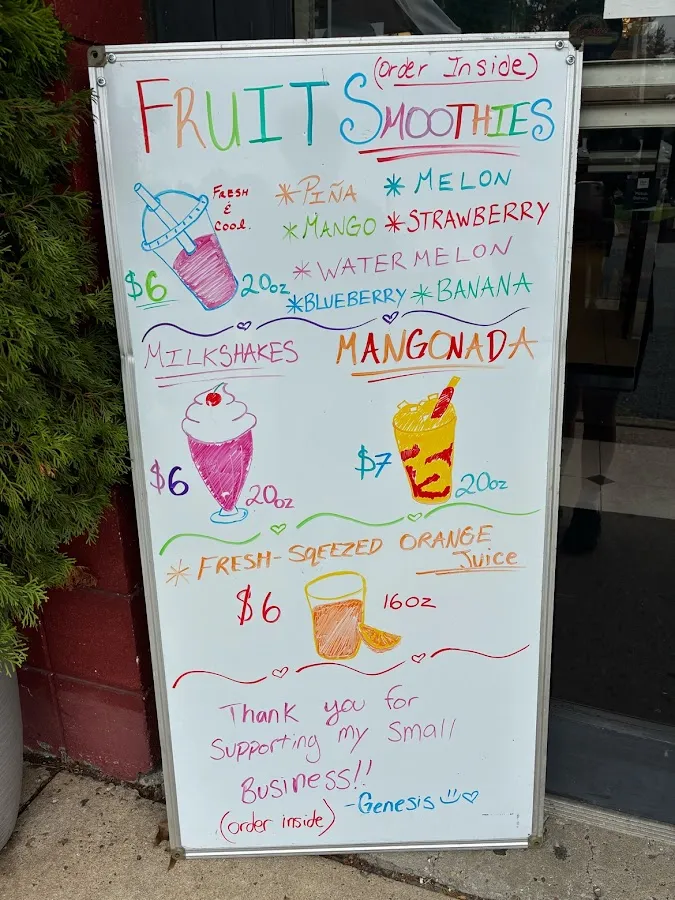 (order Inside)
FRUIT SMOOTHIES
FRESH
&
Cool.
* PIÑA
* MELON
* MANGO
* STRAWBERRY
* WATERMELON
* BLUEBERRY
* BANANA
$6
20oz
MILKSHAKES
$6
20oz
MANGONADA
$7
20oz
* FRESH-SQEEZED ORANGE
Juice
$6
16oz
Thank you for
Supporting my Small
Business!!
-Genesis
(order inside)